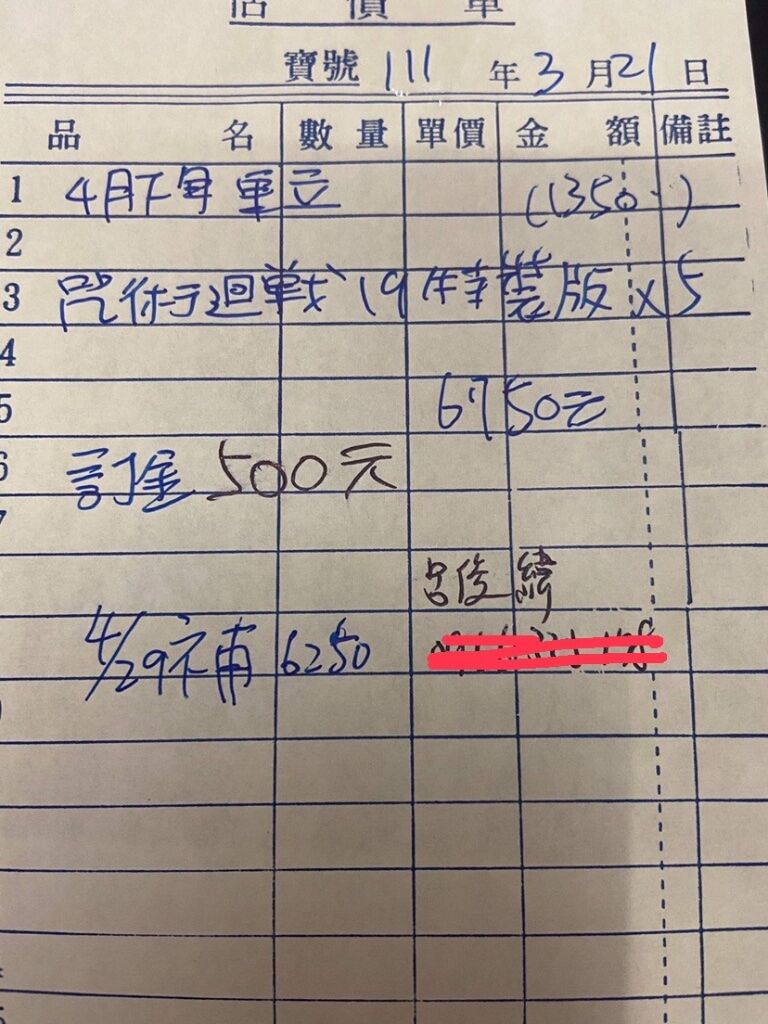 估價單
寶號 111年3月21日
品名 數量 單價 金額 備註
1 4月下旬 重立 (1350)
2
3 咒術迴戰 19 特裝版 x 5
4
5 6750元
6 訂金 500元
7
呂俊緯
4/29補 6250